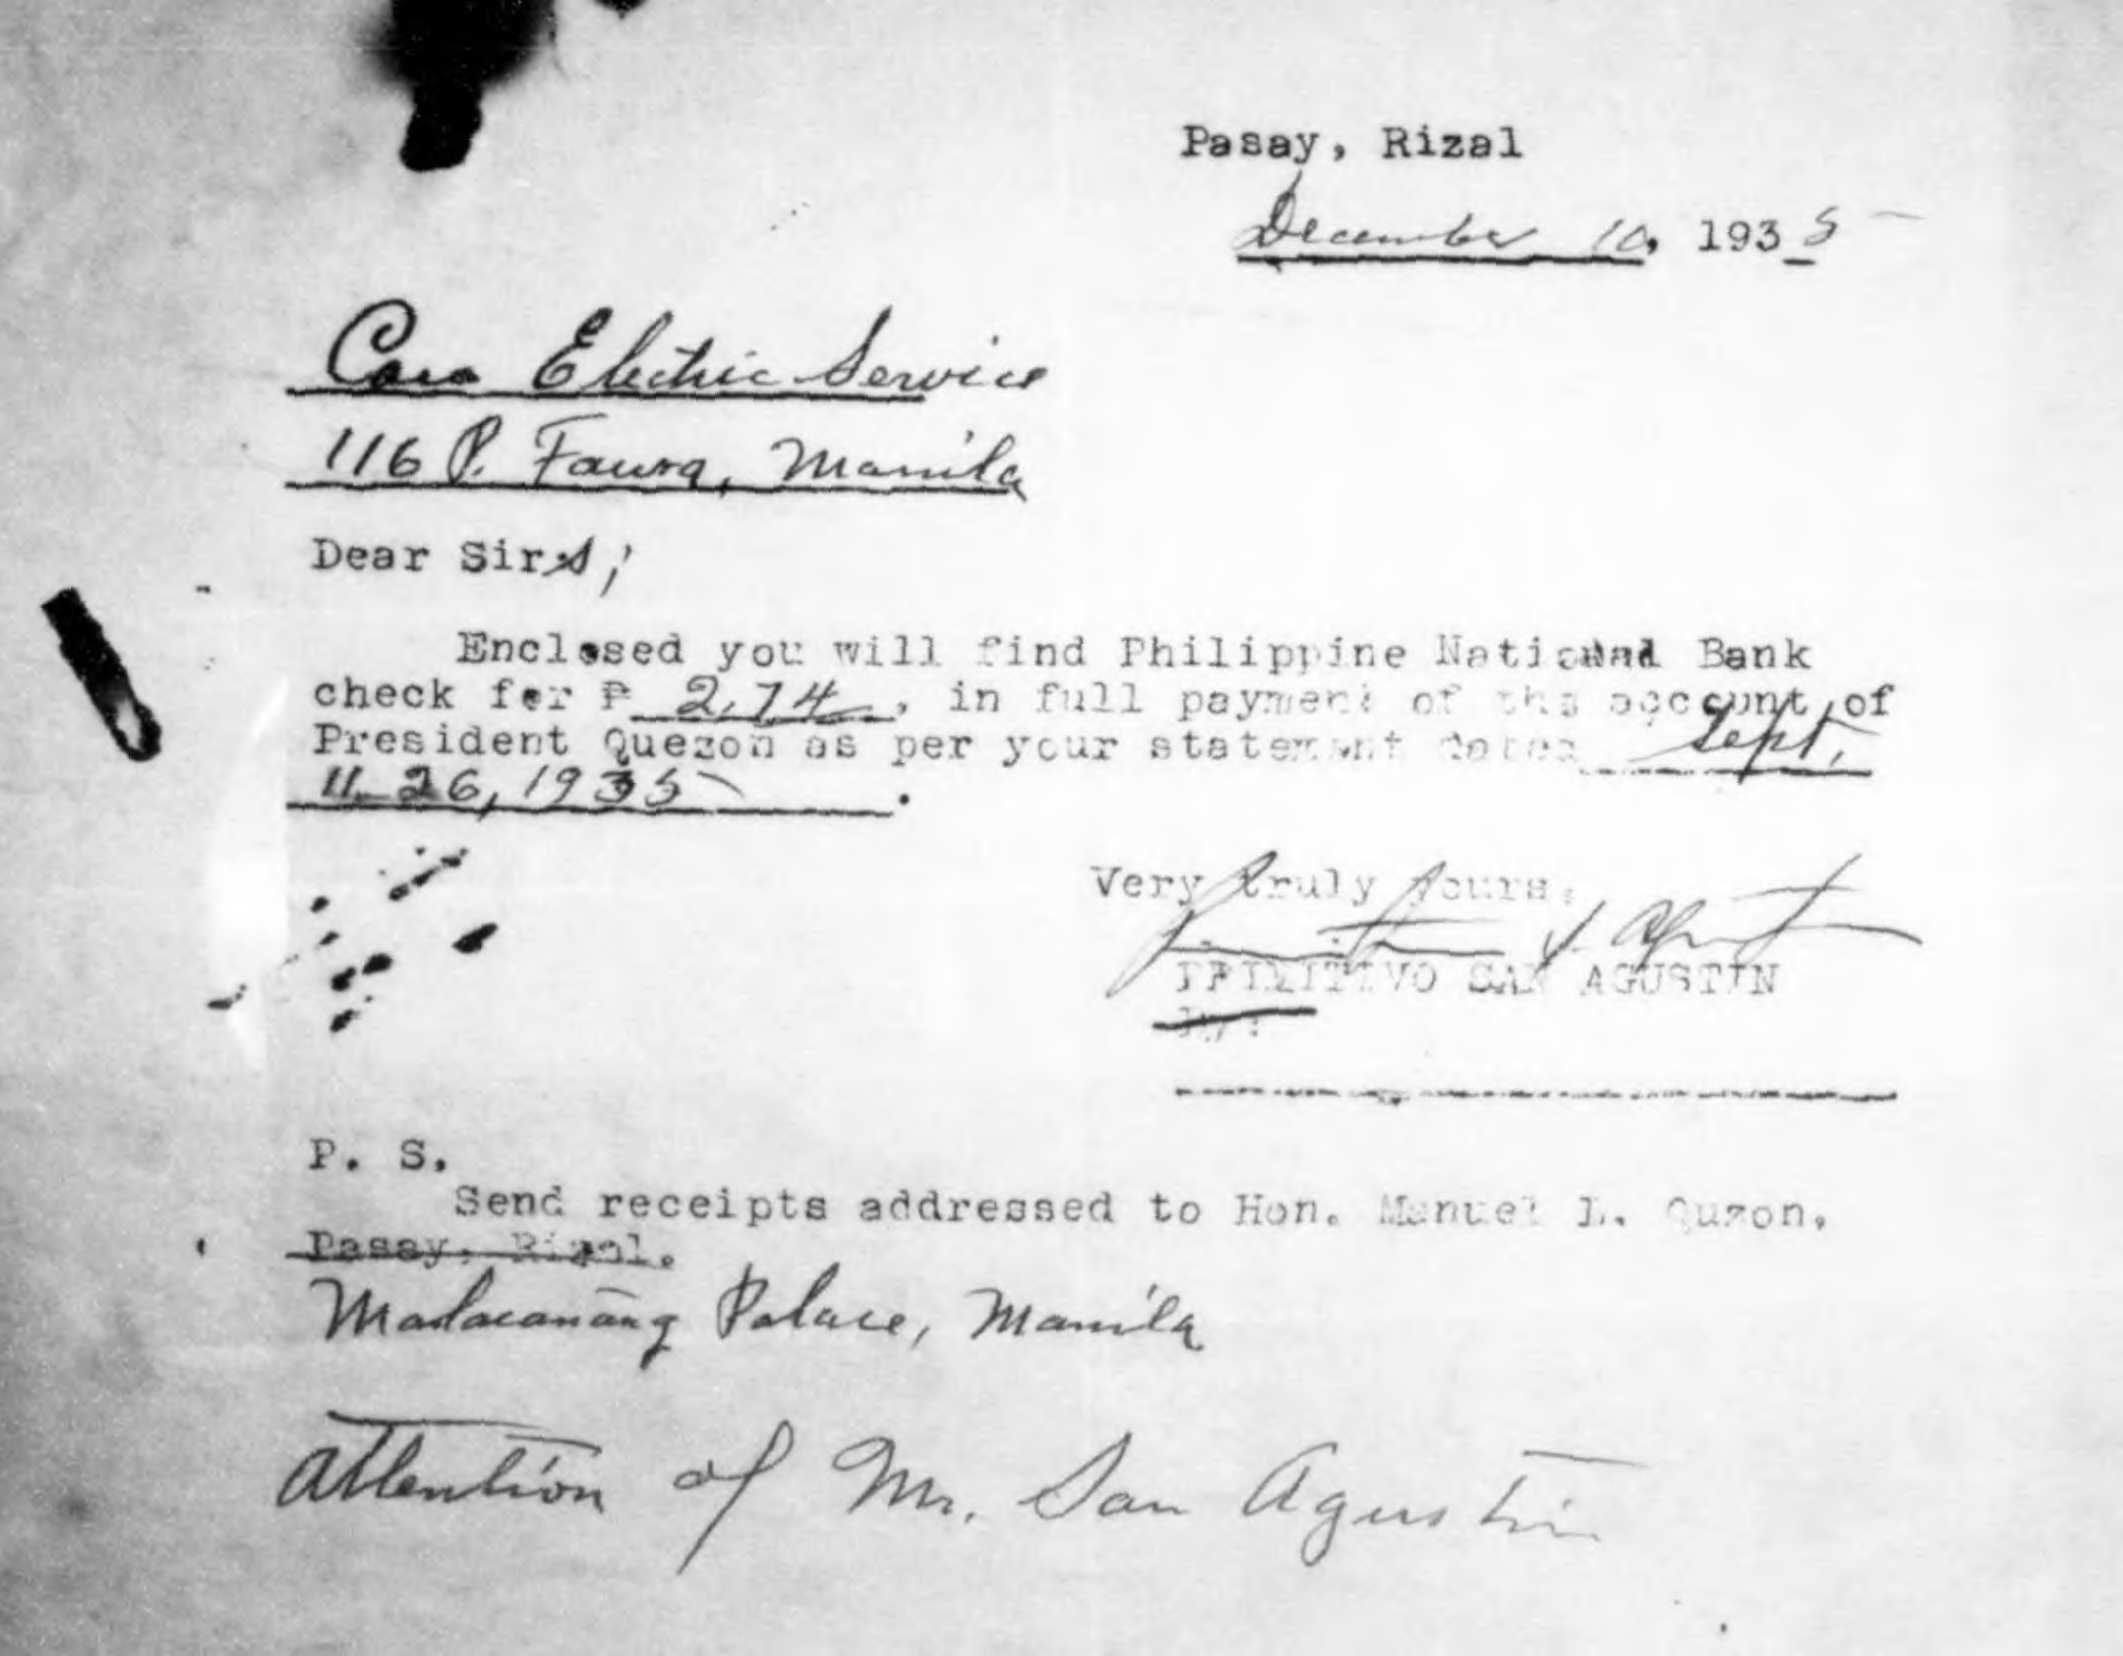 Pasay, Rizal
December 10, 1935
Caro Electric Service
116 P. Faura, Manila
Dear Sirs,
Enclosed you will find Philippine National Bank
check for ₱ 2.74, in full payment of the account of
President Quezon as per your statement dated Sept.
11-26, 1935.
Very truly yours,
PRIMITIVO SAN AGUSTIN
By:
P. S.
Send receipts addressed to Hon. Manuel L. Quzon,
Pasay, Rizal.
Malacañang Palace, Manila
Attention of Mr. San Agustin